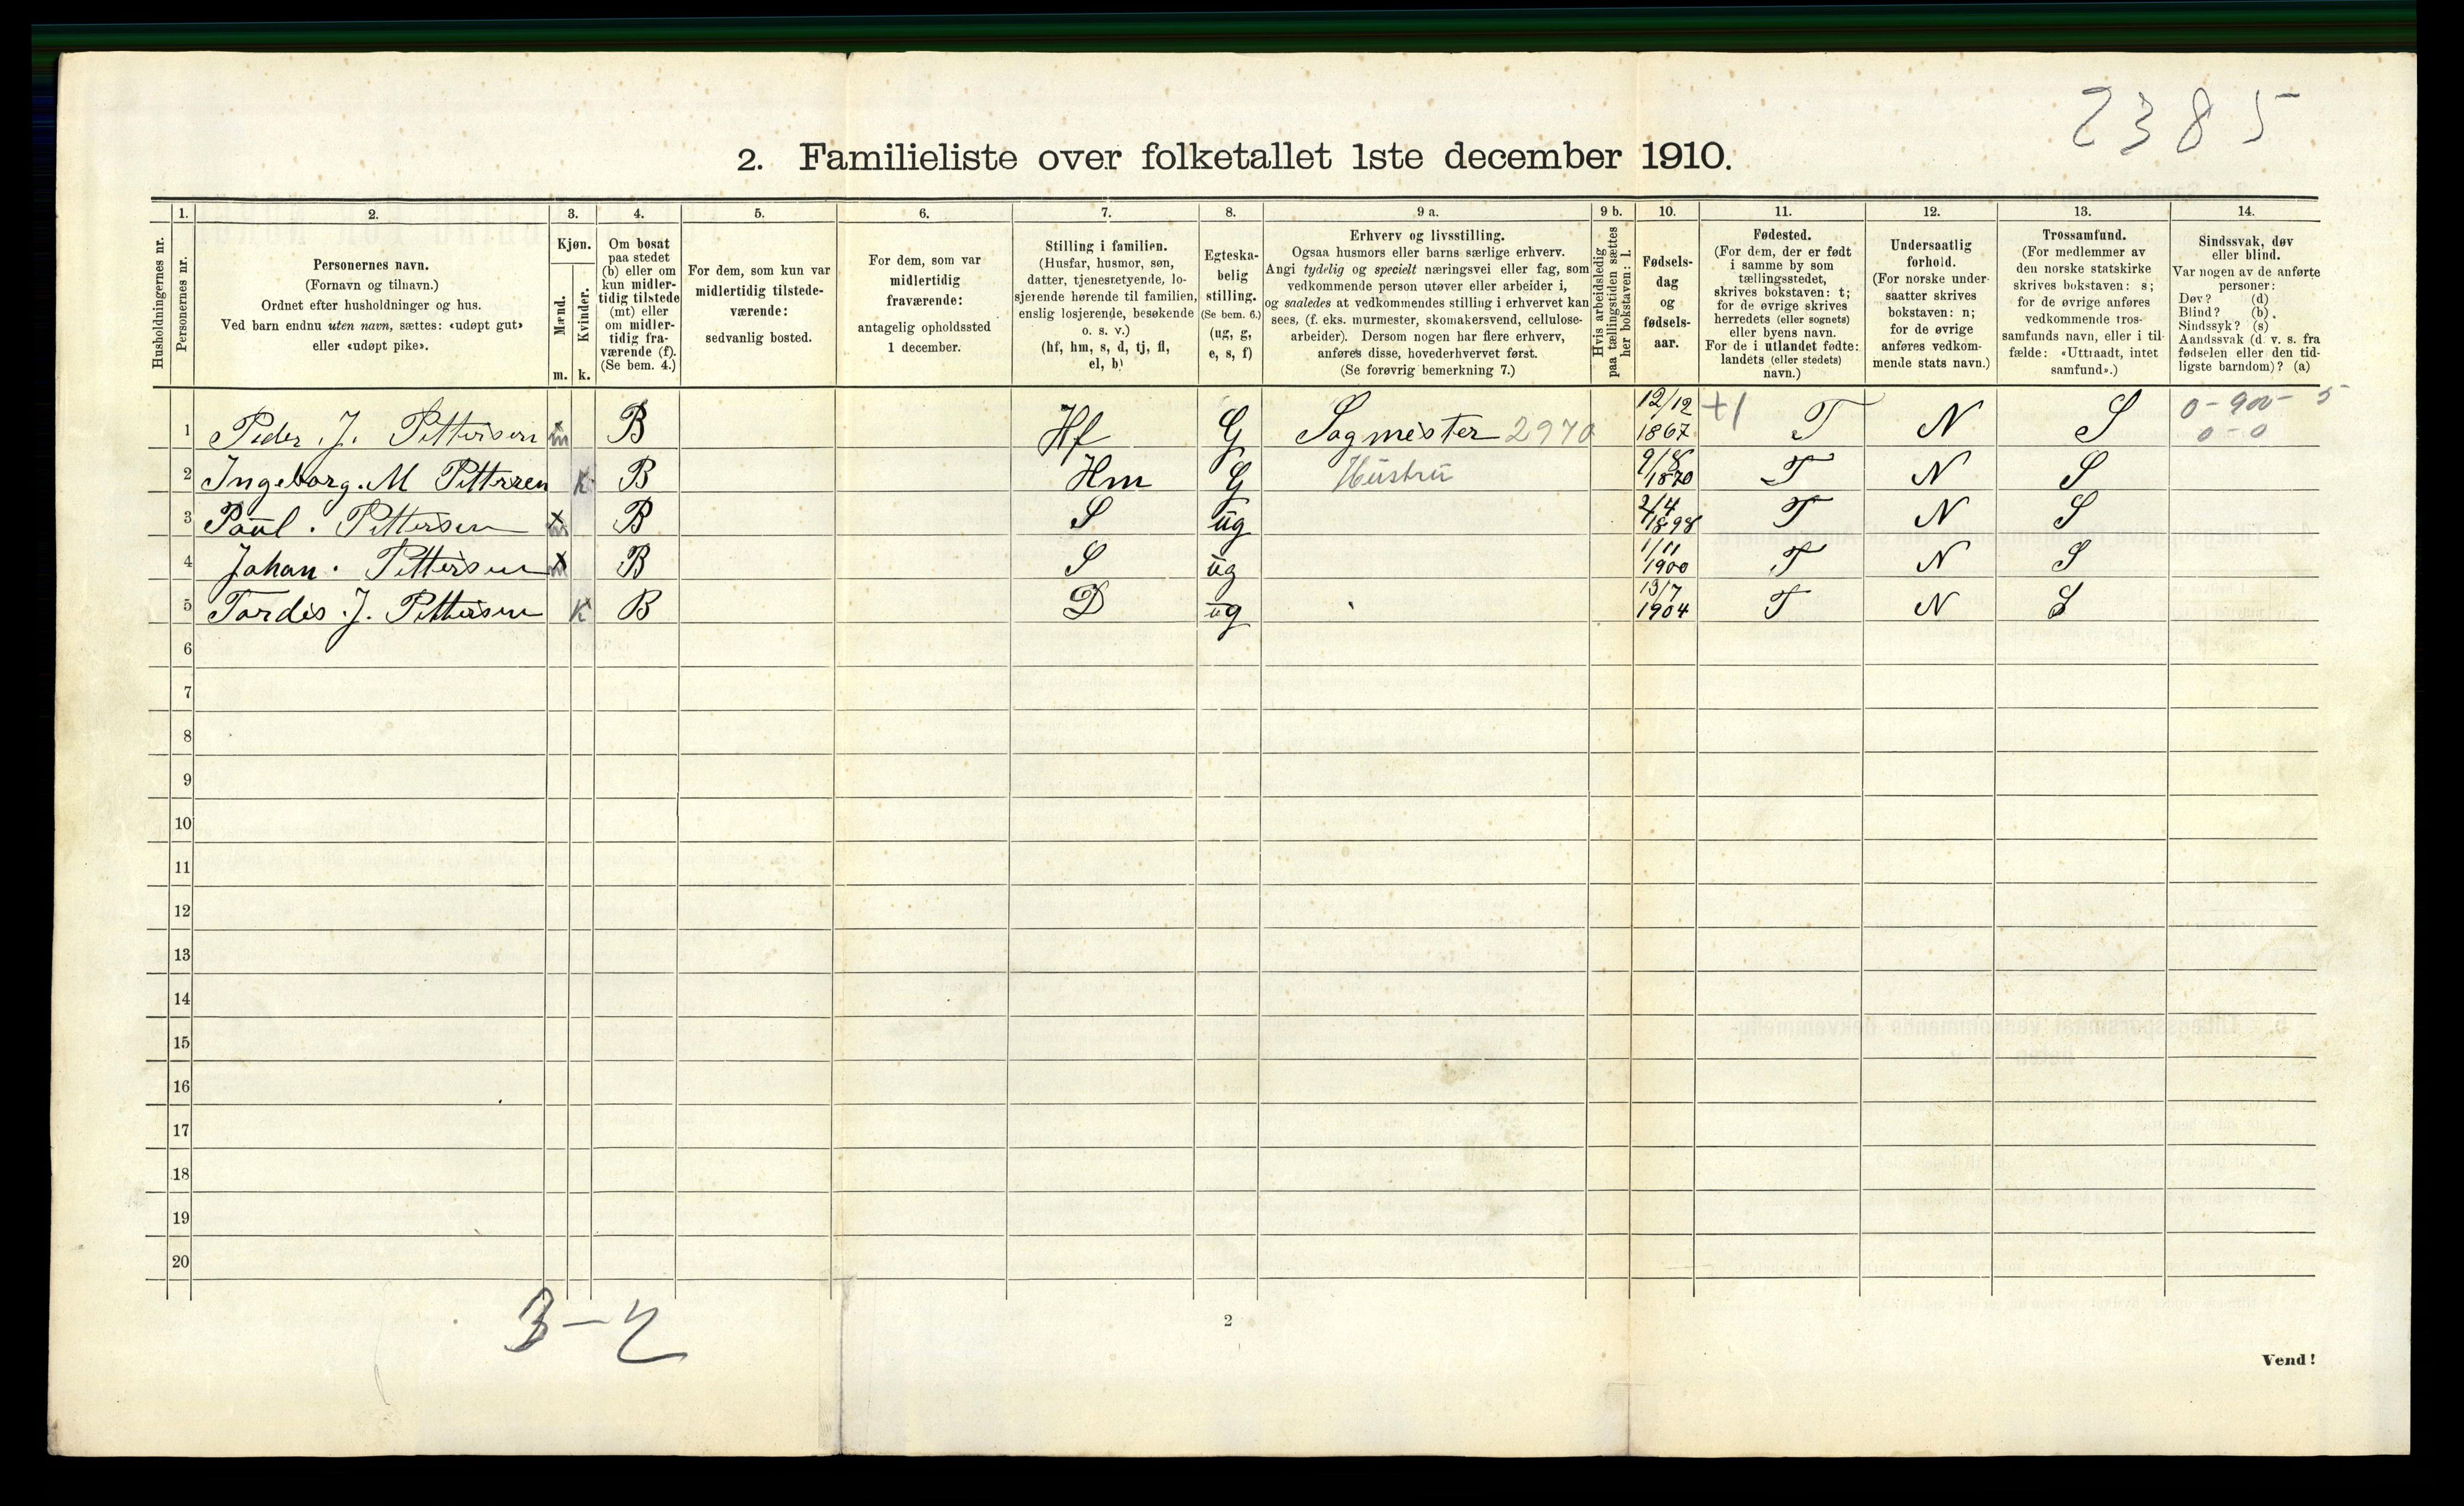 2385
2. Familieliste over folketallet 1ste december 1910.
1. 2. 3. 4. 5. 6. 7. 8. 9 a. 9 b. 10. 11. 12. 13. 14.
Husholdningernes nr.
Personernes nr.
Personernes navn.
(Fornavn og tilnavn.)
Ordnet efter husholdninger og hus.
Ved barn endnu uten navn, sættes: «udøpt gut»
eller «udøpt pike».
Kjøn.
Mænd.
Kvinder.
m. k.
Om bosat
paa stedet
(b) eller om
kun midler-
tidig tilstede
(mt) eller
om midler-
tidig fra-
værende (f).
(Se bem. 4.)
For dem, som kun var
midlertidig tilstede-
værende:
sedvanlig bosted.
For dem, som var
midlertidig
fraværende:
antagelig opholdssted
1 december.
Stilling i familien.
(Husfar, husmor, søn,
datter, tjenestetyende, lo-
sjerende hørende til familien,
enslig losjerende, besøkende
o. s. v.)
(hf, hm, s, d, tj, fl,
el, b)
Egteska-
belig
stilling.
(Se bem. 6.)
(ug, g,
e, s, f)
Erhverv og livsstilling.
Ogsaa husmors eller barns særlige erhverv.
Angi tydelig og specielt næringsvei eller fag, som
vedkommende person utøver eller arbeider i,
og saaledes at vedkommendes stilling i erhvervet kan
sees, (f. eks. murmester, skomakersvend, cellulose-
arbeider). Dersom nogen har flere erhverv,
anføres disse, hovederhvervet først.
(Se forøvrig bemerkning 7.)
Hvis arbeidsledig
paa tællingstiden sættes
her bokstaven: l.
Fødsels-
dag
og
fødsels-
aar.
Fødested.
(For dem, der er født
i samme by som
tællingsstedet,
skrives bokstaven: t;
for de øvrige skrives
herredets (eller sognets)
eller byens navn.
For de i utlandet fødte:
landets (eller stedets)
navn.)
Undersaatlig
forhold.
(For norske under-
saatter skrives
bokstaven: n;
for de øvrige
anføres vedkom-
mende stats navn.)
Trossamfund.
(For medlemmer av
den norske statskirke
skrives bokstaven: s;
for de øvrige anføres
vedkommende tros-
samfunds navn, eller i til-
fælde: «Uttraadt, intet
samfund».)
Sindssvak, døv
eller blind.
Var nogen av de anførte
personer:
Døv? (d)
Blind? (b)
Sindssyk? (s)
Aandssvak (d. v. s. fra
fødselen eller den tid-
ligste barndom)? (a)
1 Peder. J. Pettersen m B Hf G Sagmester 2970 12/12 1867 +1 T N S 0-900- 5
0-0
2 Ingeborg. M Pettersen K B Hm G Hustru 9/8 1870 T N S
3 Paul. Pettersen m B S ug 2/4 1898 T N S
4 Johan. Pettersen m B S ug 1/11 1900 T N S
5 Tordis. J. Pettersen K B D ug 13/7 1904 T N S
6
7
8
9
10
11
12
13
14
15
16
17
18
19
20
3-2
2
Vend!